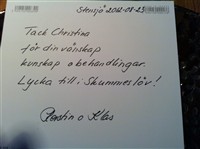 Stensjö 2012-08-23
Tack Christina
för din vänskap
kunskap o behandlingar.
Lycka till i Skummeslöv!
Kerstin o Klas